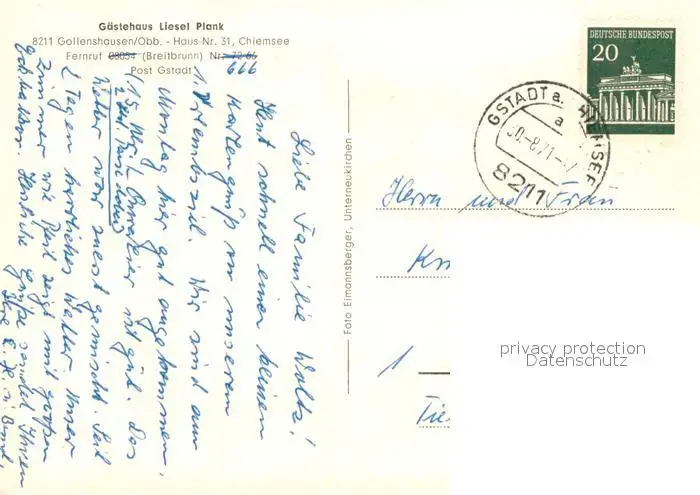 Gästehaus Liesel Plank
8211 Gollenshausen/Obb. - Haus-Nr. 31, Chiemsee
Fernruf 08054 (Breitbrunn) Nr. 72 66
666
Post Gstadt
Liebe Familie Waltz!
Heut schnell einen kleinen
Kartengruß von unserem
1. Reiseziel. Wir sind am
Montag hier gut angekommen,
ist gut. Das
Wetter war meist gemischt. Seit
2 Tagen herrliches Wetter. Unser
Zimmer wie Pfeil zeigt mit großen
Balkon. Herzliche Grüße sendet Ihnen
Foto Eimannsberger, Unterneukirchen
DEUTSCHE BUNDESPOST
20
GSTADT a. CHIEMSEE
a
30.-8.71.-17
8211
Herrn und Frau
Kn
1
Tie
privacy protection
Datenschutz